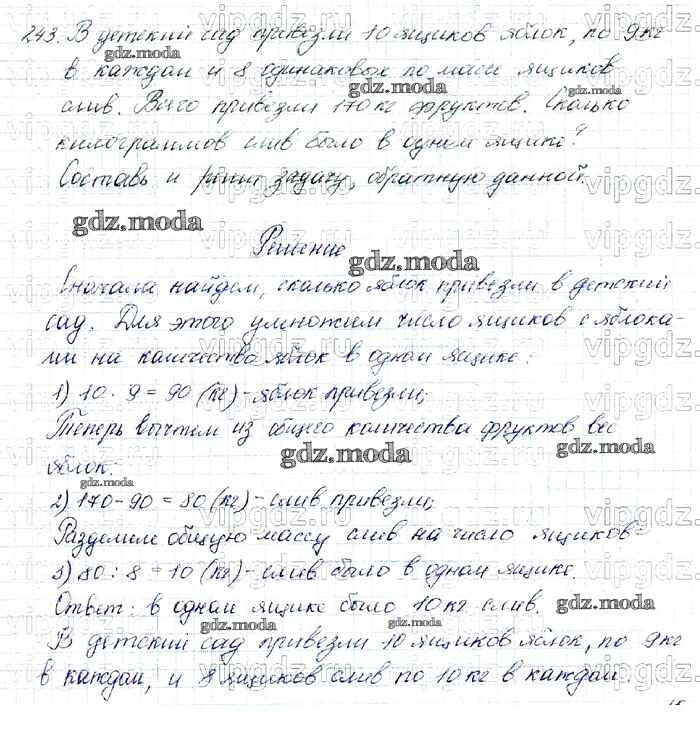 243. В детский сад привезли 10 ящиков яблок, по 9 кг
в каждом и 8 одинаковых по массе ящиков
слив. Всего привезли 170 кг фруктов. Сколько
килограммов слив было в одном ящике?
Составь и реши задачу, обратную данной.
Решение
Сначала найдем, сколько яблок привезли в детский
сад. Для этого умножим число ящиков с яблока-
ми на количества яблок в одном ящике:
1) 10 · 9 = 90 (кг) - яблок привезли;
Теперь вычтем из общего количества фруктов вес
яблок:
2) 170 - 90 = 80 (кг) - слив привезли;
Разделим общую массу слив на число ящиков
3) 80 : 8 = 10 (кг) - слив было в одном ящике.
Ответ: в одном ящике было 10 кг слив.
В детский сад привезли 10 ящиков яблок, по 9 кг
в каждом, и 8 ящиков слив по 10 кг в каждом.